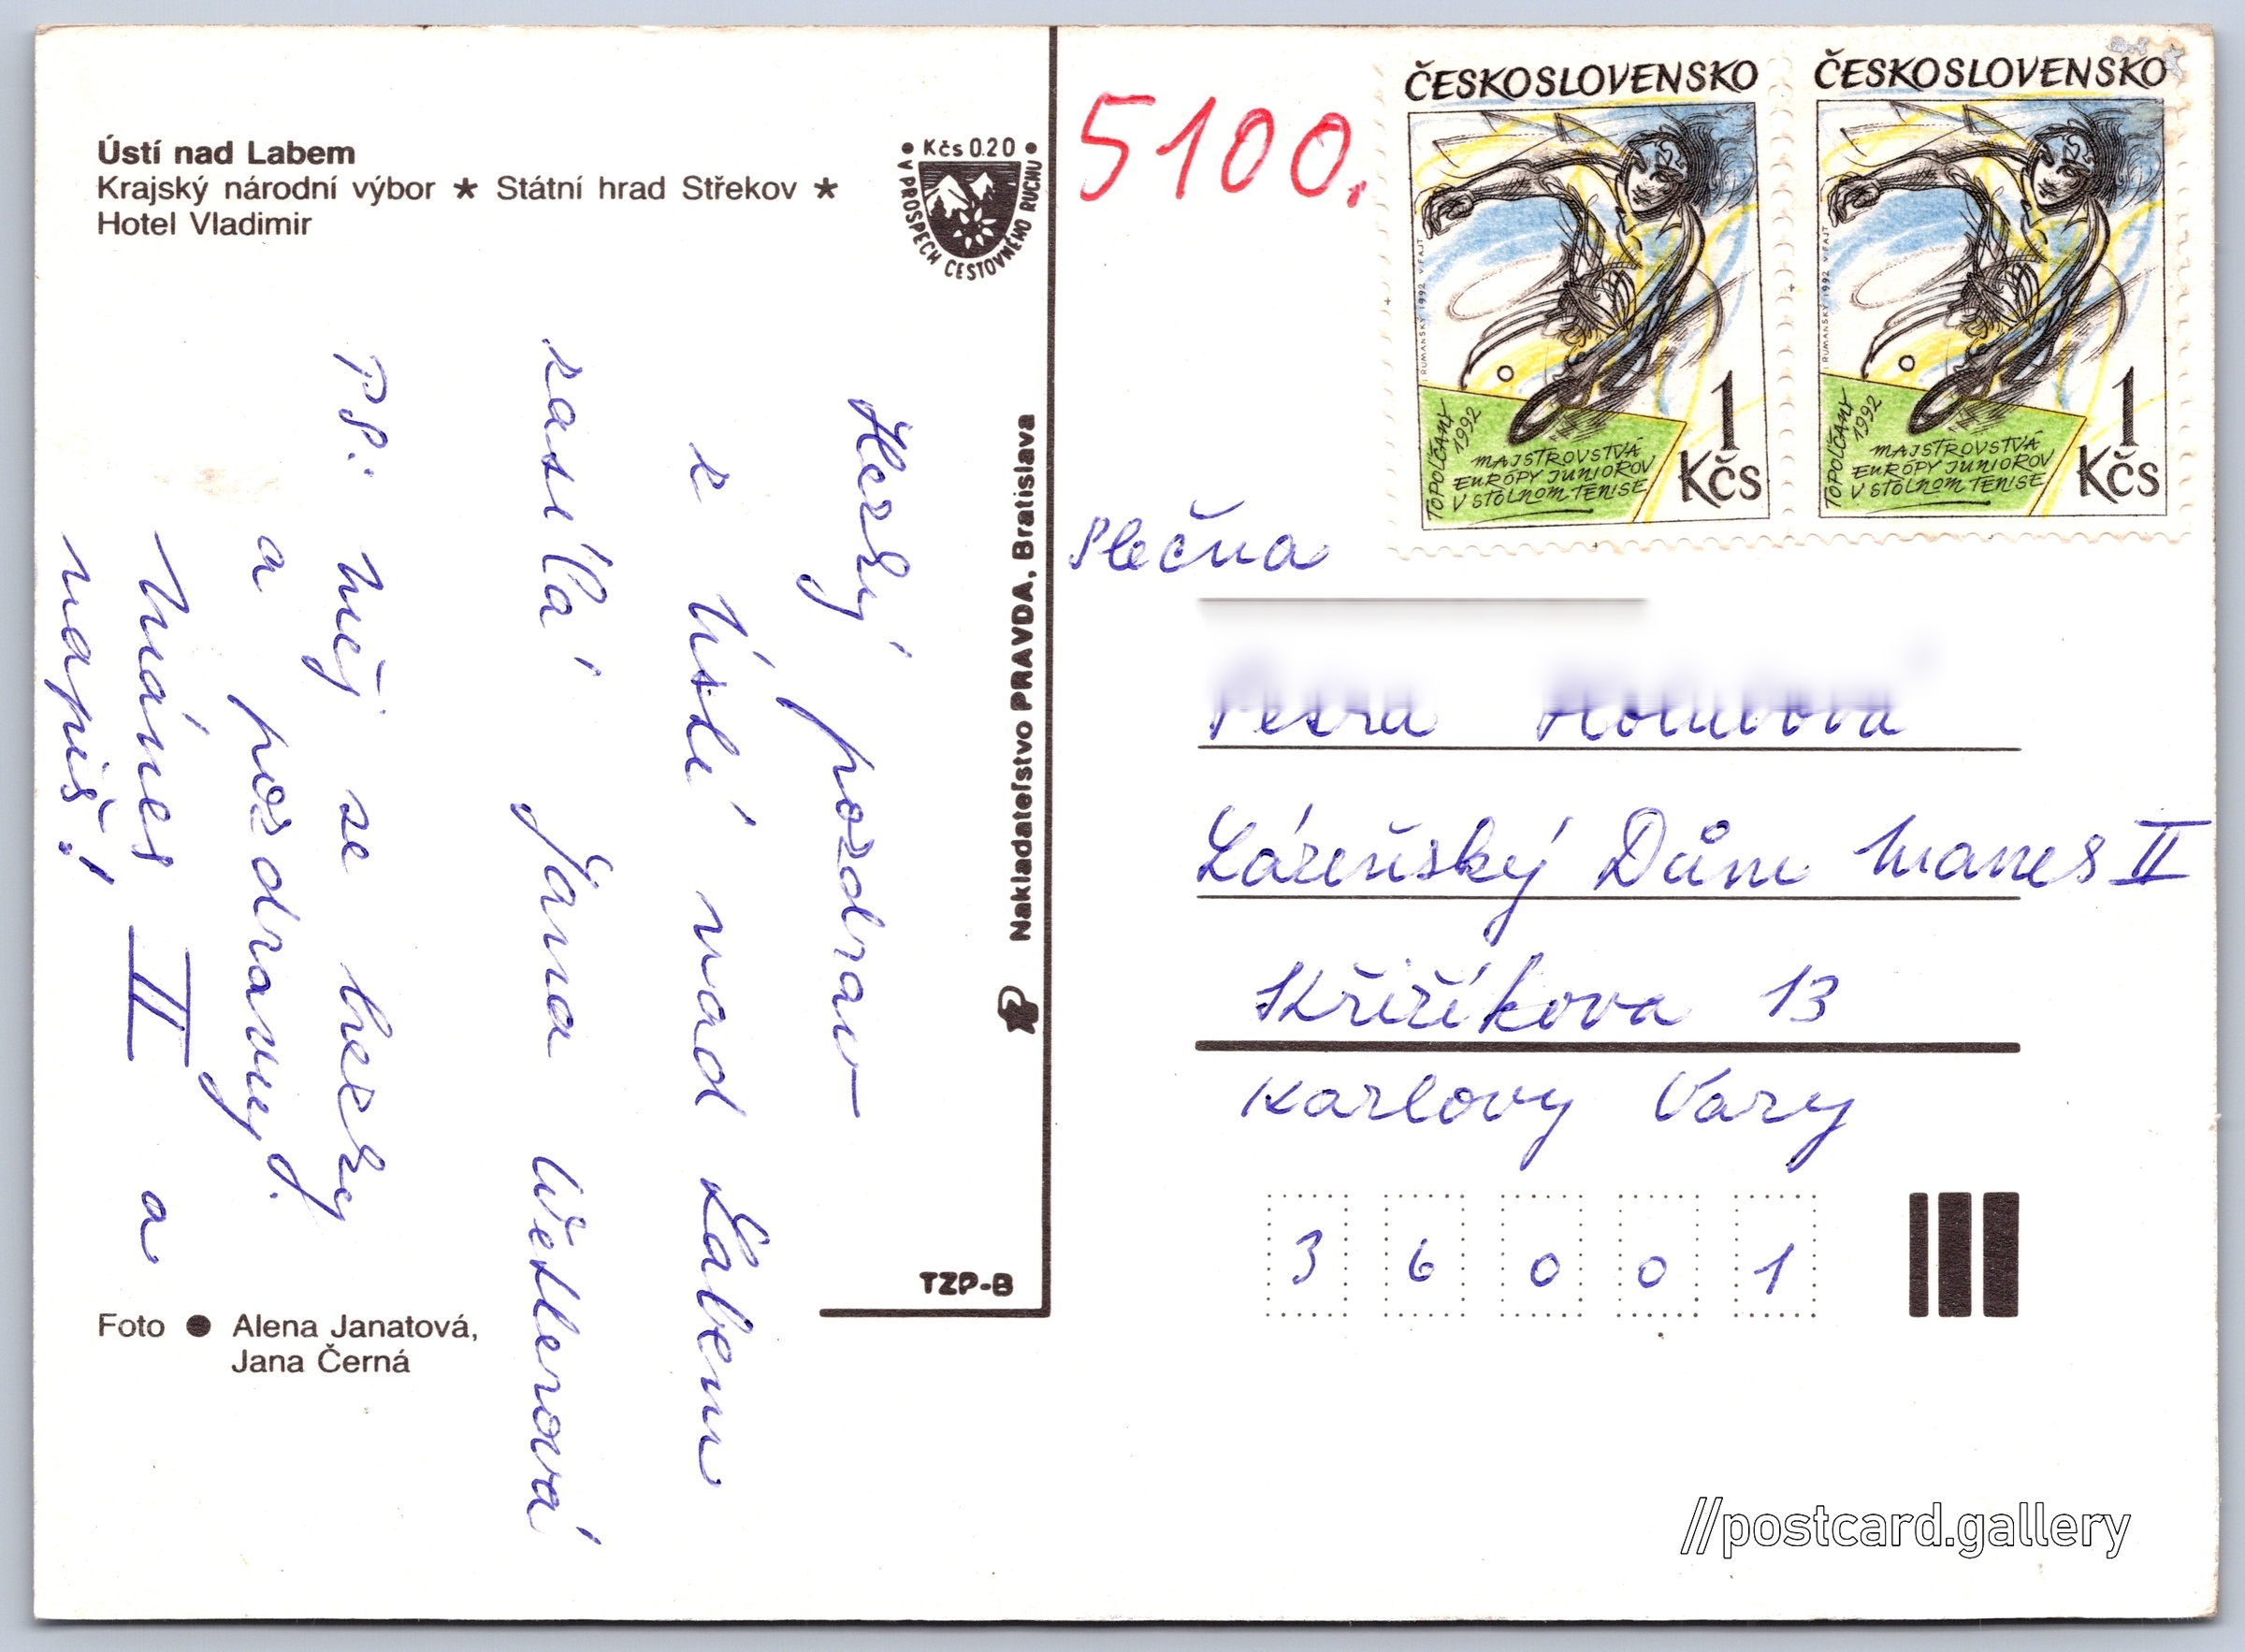 Ústí nad Labem
Krajský národní výbor ★ Státní hrad Střekov ★
Hotel Vladimir
• Kčs 0.20 •
V PROSPECH CESTOVNÉHO RUCHU
Hezký pozdrav
z Ústí nad Labem
zasílá Jana
PS: měj se hezky
a pozdravuj!
Mánes II a
napiš!
Foto ● Alena Janatová,
Jana Černá
Nakladateľstvo PRAVDA, Bratislava
TZP-B
5100.
ČESKOSLOVENSKO
RUMANSKÝ 1992 V. FAJT
TOPOĽČANY 1992
MAJSTROVSTVÁ
EURÓPY JUNIOROV
V STOLNOM TENISE
1 Kčs
ČESKOSLOVENSKO
RUMANSKÝ 1992 V. FAJT
TOPOĽČANY 1992
MAJSTROVSTVÁ
EURÓPY JUNIOROV
V STOLNOM TENISE
1 Kčs
slečna
Lázeňský Dům Manes II
Křižíkova 13
Karlovy Vary
36001
//postcard.gallery